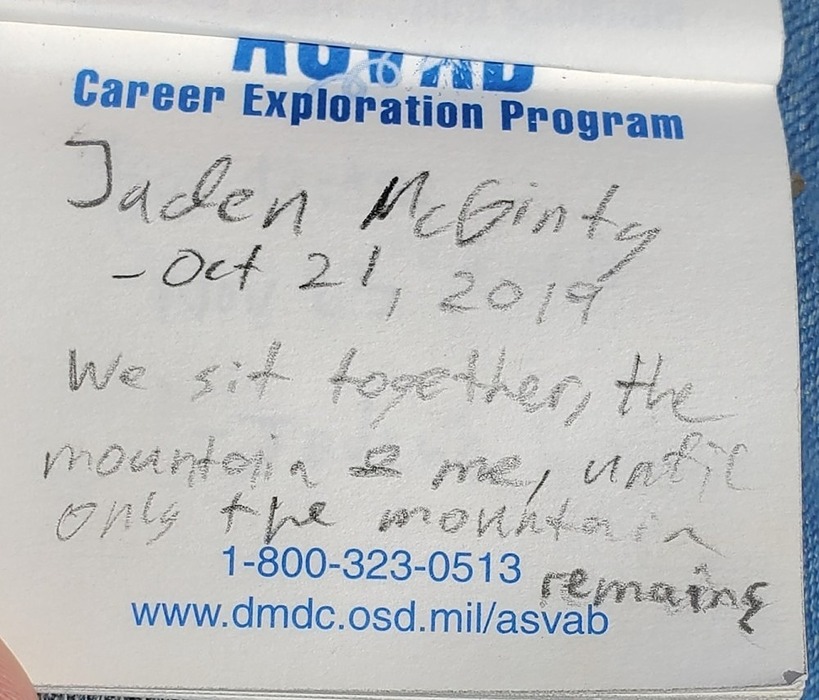 ASVAB
Career Exploration Program
Jaden McGinty
- Oct 21, 2019
We sit together, the
mountain & me, until
only the mountain
remains
1-800-323-0513
www.dmdc.osd.mil/asvab